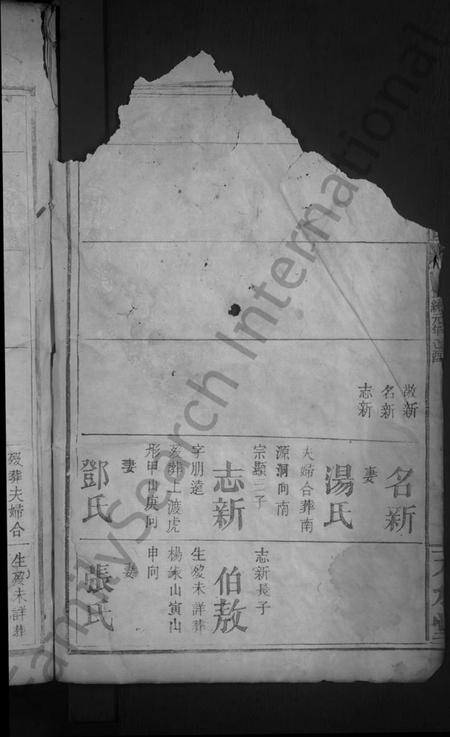 敞新
名新
志新
名新
妻
湯氏
夫婦合葬南
源洞向南
宗顯三子
志新
字朋遠
歿葬上渡虎
形甲山庚向
妻
鄧氏
志新長子
伯敖
生歿未詳葬
楊梓山寅山
申向
妻
張氏
歿葬夫婦合
生歿未詳葬
FamilySearch International